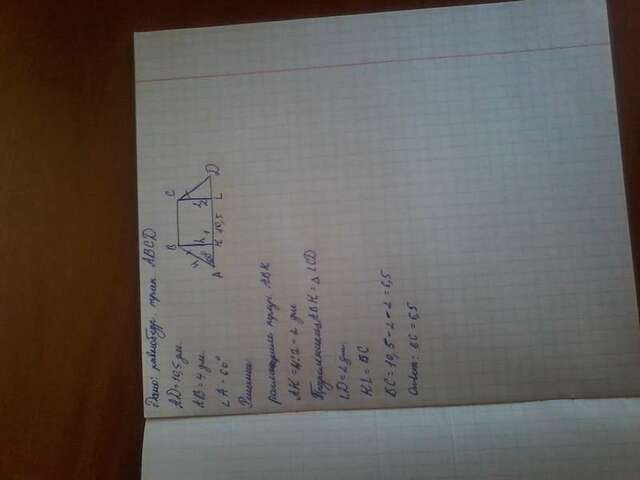 Дано: равнобедр. трап. ABCD
AD = 10,5 дм.
AB = 4 дм.
∠A = 60°
Решение:
рассмотрим треуг. ABK
AK = 4:2 = 2 дм
ABK = △LCD
LD = 2 дм.
KL = BC
BC = 10,5 - 2 - 2 = 6,5
Ответ: BC = 6,5
B C
4 h₁ h₂
A 60° K 10,5 L D